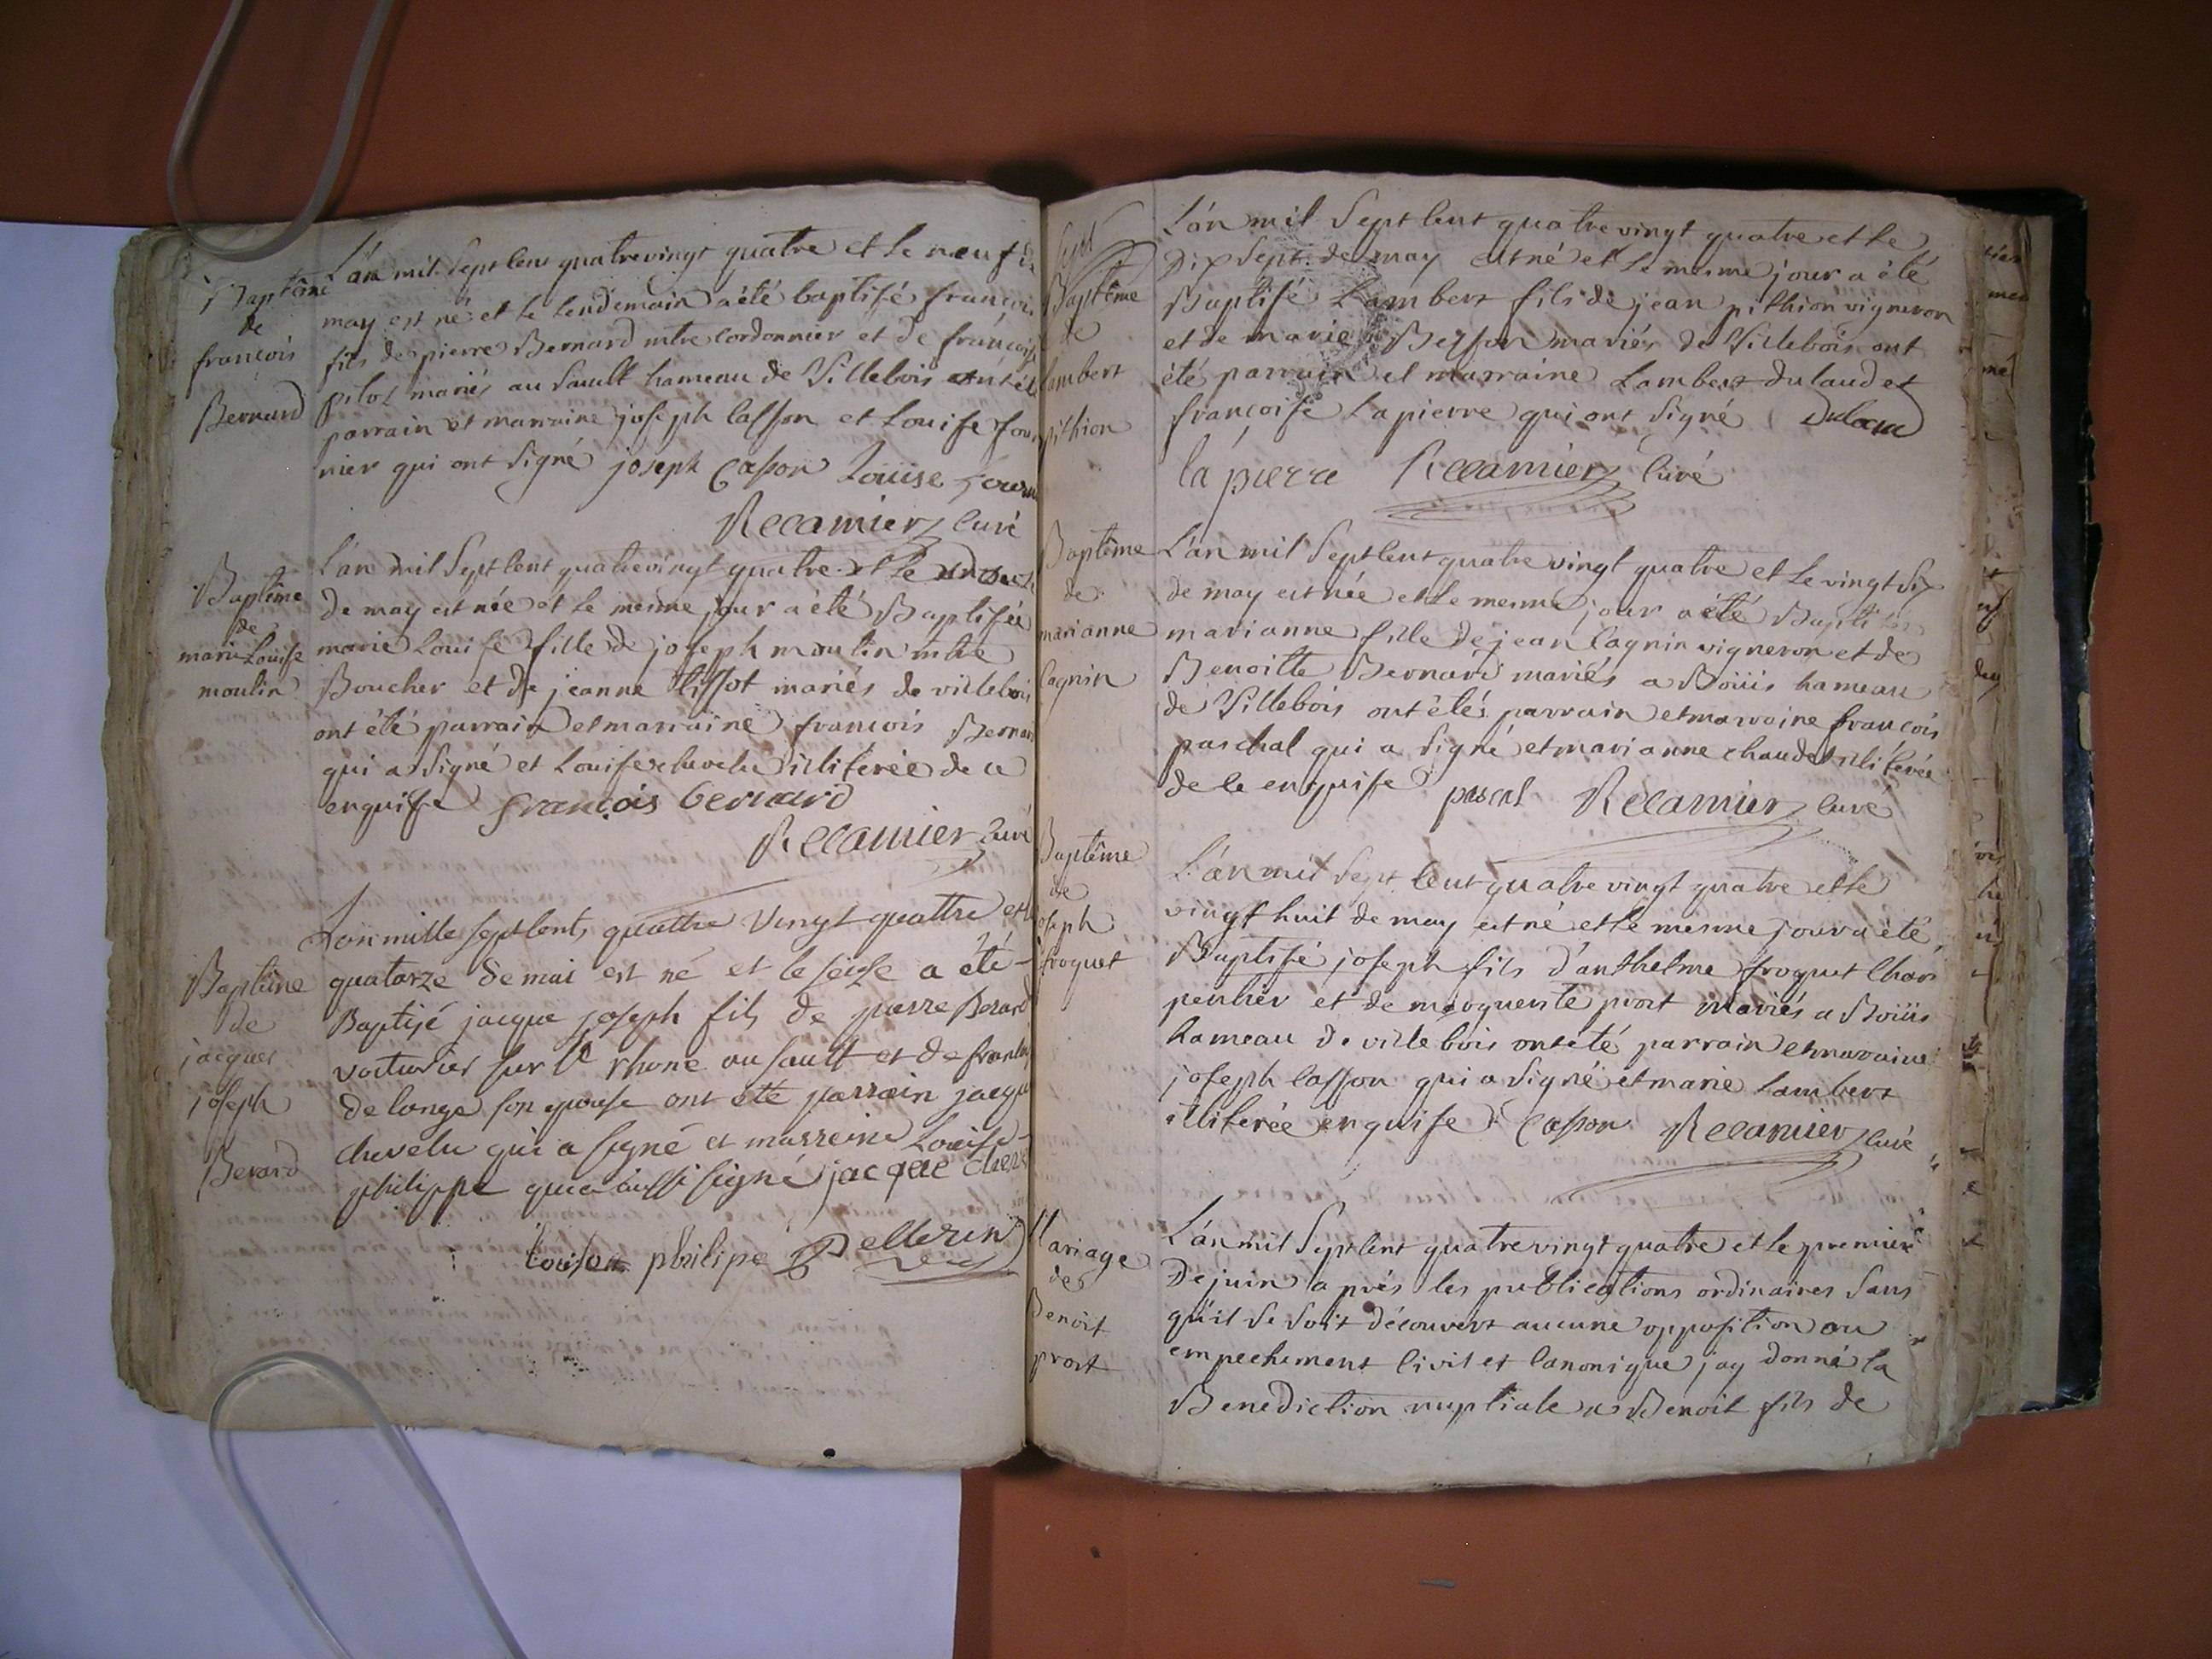 Baptême
de
françois
Bernard
L'an mil sept cent quatre vingt quatre et le neuf de
may est né et le lendemain a été baptisé françois
fils de pierre Bernard mtre cordonnier et de françoise
pilot mariés au Sault hameau de Villebois ont été
parrain et marraine joseph Casson et Louise four
nier qui ont signé joseph Casson Louise fourn
Recamier Curé
Baptême
de
marie Louise
moulin
L'an mil sept cent quatre vingt quatre et le
de may est née et le mesme jour a été Baptisée
marie Louise fille de joseph moulin mtre
Boucher et de jeanne tissot mariés de villebois
ont été parrain et marraine françois Bernard
qui a signé et Louise chevelu illiterée de ce
enquise françois bernard
Recamier curé
Baptême
de
jacques
joseph
Berard
L'an mille sept cents quattre vingt quattre et le
quatorze de mai est né et le seize a été
Baptisé jacque joseph fils de pierre Berard
voiturier sur le rhone au sault et de
de longe son epouse ont été parrain jacque
chevelu qui a signé et marreine Louise
philippe qui a aussi signé jacque cheve
louison philipe Pellerin
Sept
Baptême
de
lambert
pithion
L'an mil Sept Cent quatre vingt quatre et le
Dix Sept de may est né et le mesme jour a été
Baptisé Lambert fils de jean pithion vigneron
et de marie Besson mariés de Villebois ont
été parrain et marraine Lambert dulaud et
françoise Lapierre qui ont signé Dulaud
la pierre Recamier Curé
Baptême
de
marianne
Cagnin
L'an mil Sept Cent quatre vingt quatre et le vingt six
de may est née et le mesme jour a été Baptisée
marianne fille de jean Cagnin vigneron et de
Benoitte Bernard mariés a Boüis hameau
de Villebois ont étés parrain et marraine françois
paschal qui a signé et marianne chaudet illiterée
de ce enquise pascal Recamier curé
Baptême
de
joseph
froquet
L'an mil Sept Cent quatre vingt quatre et le
vingt huit de may est né et le mesme jour a été
Baptisé joseph fils d'anthelme froquet Char
pentier et de marguerite prost mariés a Boüis
hameau de villebois ont été parrain et maraine
joseph Casson qui a signé et marie Lambert
illiterée enquise Casson Recamier curé
Mariage
de
Benoit
prost
L'an mil Sept Cent quatre vingt quatre et le premier
De juin après les publications ordinaires Sans
qu'il se soit découvert aucune opposition ou
empechement Civil et Canonique jay donné la
Benediction nuptiale a Benoit fils de